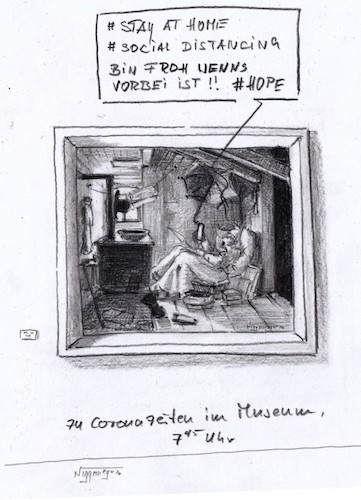 # STAY AT HOME
# SOCIAL DISTANCING
BIN FROH WENNS
VORBEI IST !! #HOPE
zu Coronazeiten im Museum,
7⁴⁵ Uhr